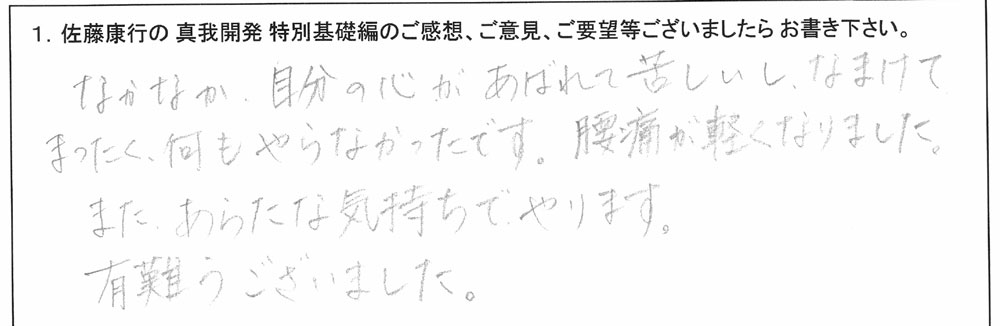 1. 佐藤康行の 真我開発 特別基礎編のご感想、ご意見、ご要望等ございましたら お書き下さい。
なかなか、自分の心が あばれて苦しいし、なまけて
まったく、何もやらなかったです。腰痛が軽くなりました。
また、あらたな気持ちで、やります。
有難うございました。